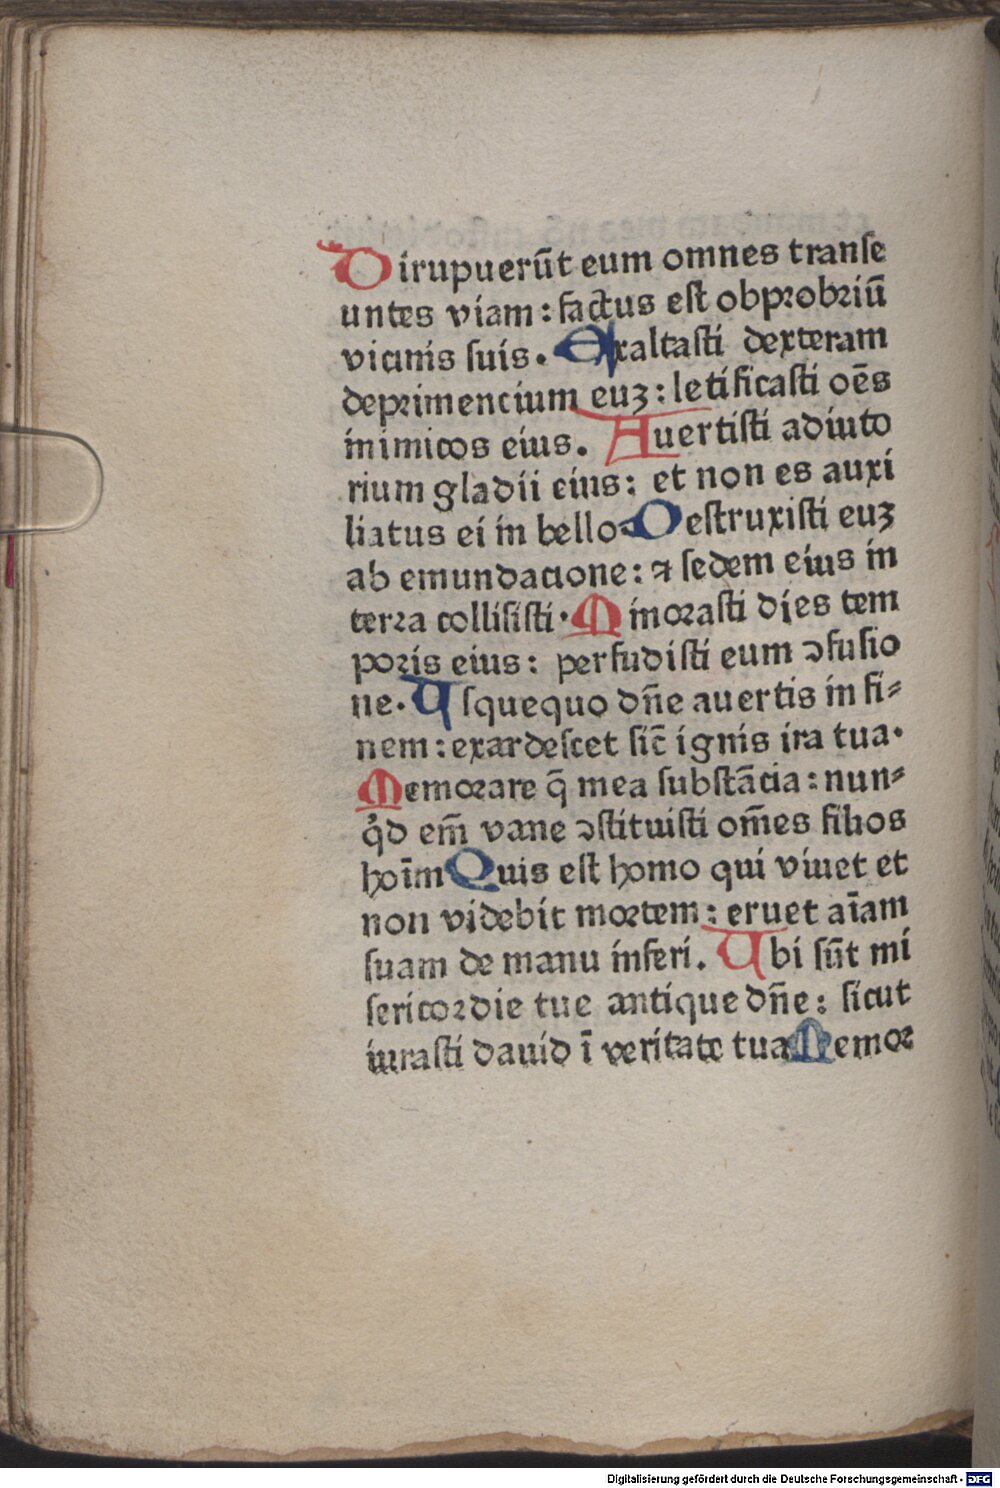 Dirupuerūt eum omnes transe
untes viam : factus est obprobriū
vicinis suis . Exaltasti dexteram
deprimencium euꝫ : letificasti oēs
inimicos eius . Auertisti adiuto
rium gladii eius : et non es auxi
liatus ei in bello Destruxisti euꝫ
ab emundacione : ⁊ sedem eius in
terra collisisti · Minorasti dies tem
poris eius : perfudisti eum ꝯfusio
ne · Usquequo dn̄e auertis in fi⸗
nem : exardescet sic̄ ignis ira tua ·
Memorare q̄ mea substācia : nun⸗
qͥd em̄ vane ꝯstituisti om̄es filios
hoīm Quis est homo qui viuet et
non videbit mortem : eruet aīam
suam de manu inferi . Ubi sūt mi
sericordie tue antique dn̄e : sicut
iurasti dauid ī veritate tua Memor
Digitalisierung gefördert durch die Deutsche Forschungsgemeinschaft - DFG